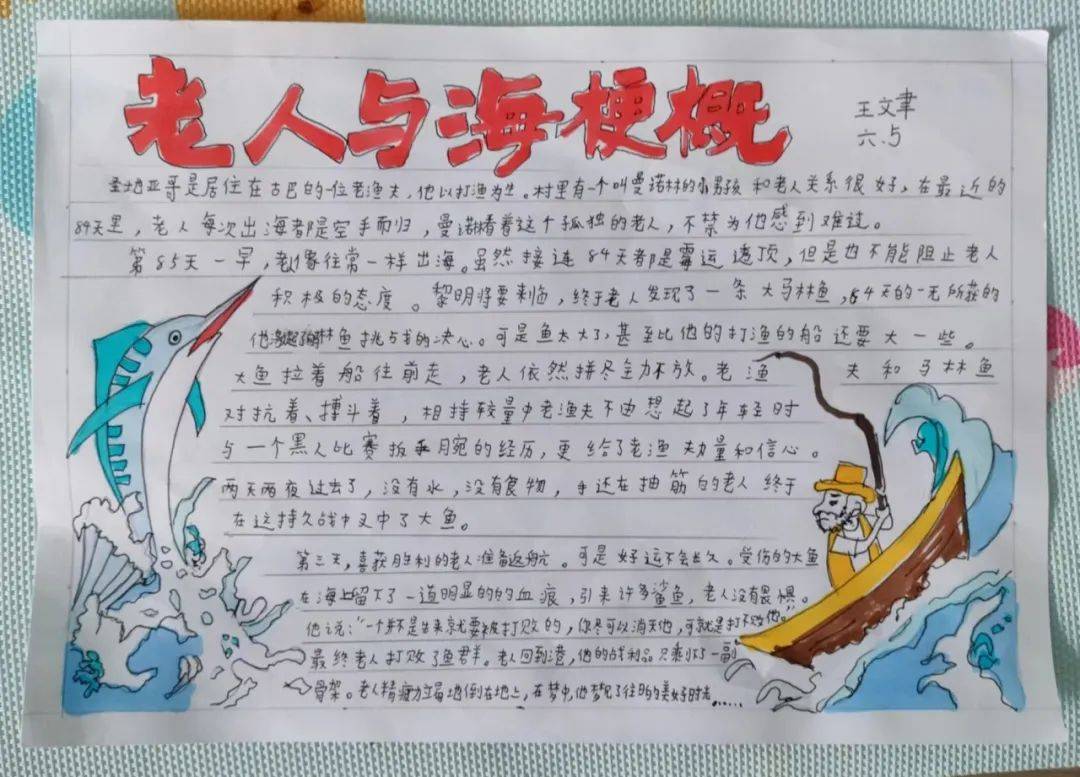 老人与海梗概
王文聿
六.5
圣地亚哥是居住在古巴的一位老渔夫，他以打渔为生。村里有一个叫曼诺林的小男孩和老人关系很好，在最近的
84天里，老人每次出海都是空手而归，曼诺林看着这个孤独的老人，不禁为他感到难过。
第85天一早，老人像往常一样出海。虽然接连84天都是霉运透顶，但是也不能阻止老人
积极的态度。黎明将要来临，终于老人发现了一条大马林鱼，84天的一无所获的
他激起了马林鱼挑战的决心。可是鱼太大了，甚至比他的打渔的船还要大一些。
大鱼拉着船往前走，老人依然拼尽全力不放。老渔夫和马林鱼
对抗着、搏斗着，相持较量中老渔夫不由想起了年轻时
与一个黑人比赛扳手腕的经历，更给了老渔夫力量和信心。
两天两夜过去了，没有水，没有食物，手还在抽筋的老人终于
在这持久战中叉中了大鱼。
第三天，喜获胜利的老人准备返航。可是好运不会长久。受伤的大鱼
在海上留下了一道明显的的血痕，引来许多鲨鱼，老人没有畏惧。
他说：“一个并不是生来就要被打败的，你尽可以消灭他，可就是打不败他。”
最终老人打败了鱼群。老人回到港，他的战利品只剩下了一副
骨架。老人精疲力竭地倒在地上，在梦中，他梦见了往日的美好时光……